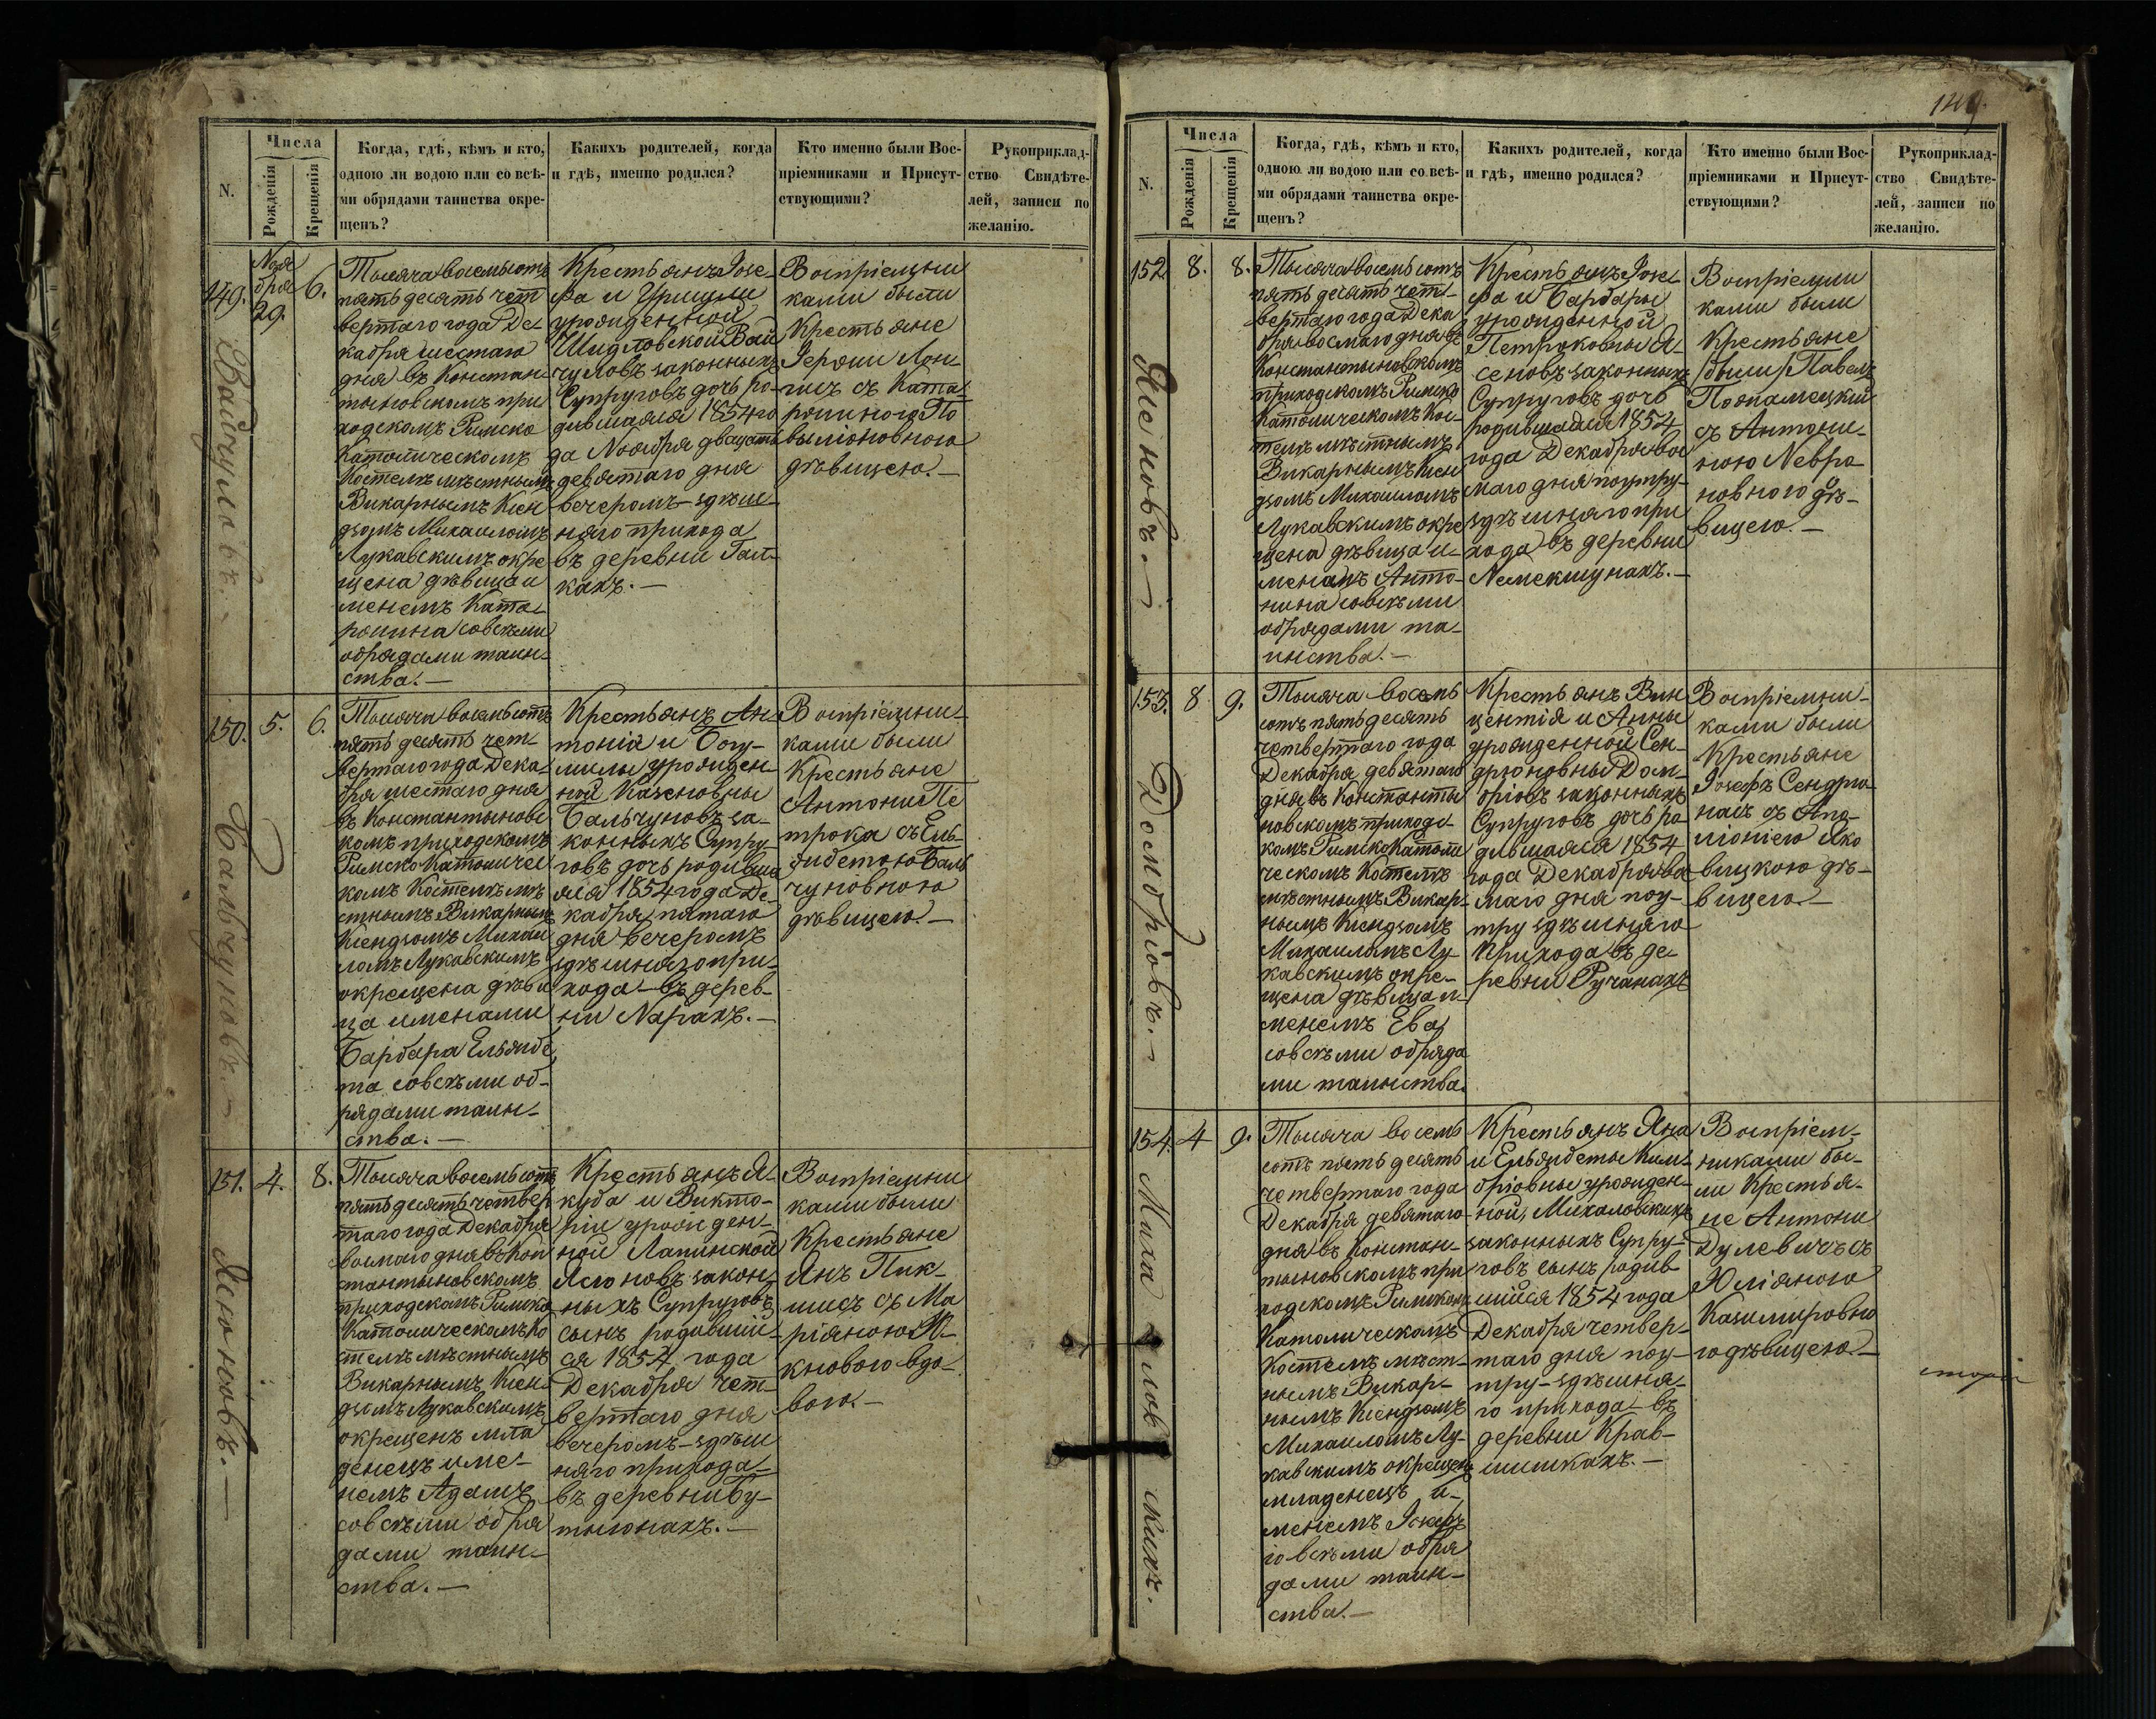 N.
Числа
Рожденія
Крещенія
Когда, гдѣ, кѣмъ и кто,
одною ли водою или со всѣ-
ми обрядами таинства окре-
щенъ?
Какихъ родителей, когда
и гдѣ, именно родился?
Кто именно были Вос-
пріемниками и Присут-
ствующими?
Рукоприклад-
ство Свидѣте-
лей, записи по
желанію.
149.
Ноя
бря
29.
6.
Вайчуловъ.
Тысяча восемьсотъ
пятьдесятъ чет
вертаго года Де-
кабря шестаго
дня въ Констан
тыновскомъ при
ходскомъ Римско
Католическомъ
Костелѣ мѣстнымъ
Викарнымъ Ксен
дзомъ Михаиломъ
Лукавскимъ окре
щена дѣвица и
менемъ Ката-
рощина совсѣми
обрядами таин-
ства.—
Крестьянъ Іозе-
фа и Уршули
урожденной
Шидловской Вай
чуловъ законныхъ
Супруговъ дочь ро-
дившаяся 1854 го
да Ноября двацать
девятаго дня
вечеромъ—здѣш-
няго прихода
въ деревни Гал-
кахъ.—
Воспріемни
ками были
Крестьяне
Героним Лон-
гись съ Ката-
рощиною По
вылоновною
дѣвицею.—
150.
5.
6.
Бальчуновъ.—
Тысяча восемьсотъ
пятьдесятъ чет-
вертаго года Дека-
бря шестаго дня
въ Константынове
комъ приходскомъ
Римско Католичес
комъ Костелѣ мѣ
стнымъ Викарнымъ
Ксендзомъ Михаи
ломъ Лукавскимъ
окрещена дѣви
ца именами
Барбара Ельжбе
та совсѣми об-
рядами таин-
ства.—
Крестьянъ Ан-
тонія и Богу-
милы урожден-
ной Казеновны
Бальчуновъ за-
конныхъ Супру-
говъ дочь родивша
яся 1854 года Де-
кабря пятаго
дня вечеромъ
здѣшняго при-
хода—въ дерев-
ни Nарахъ.—
Воспріемни-
ками были
Крестьяне
Антони Пе
трока съ Ель-
жбетою Баль
чуновною
дѣвицею.—
151.
4.
8.
Ясюновъ.—
Тысяча восемьсотъ
пятьдесятъ четвер
таго года Декабря
восмаго дня въ Кон
стантыновскомъ
приходскомъ Римско
Католическомъ Ко
стелѣ мѣстнымъ
Викарнымъ Ксен-
дзомъ Лукавскимъ
окрещенъ мла
денецъ име-
немъ Адамъ
совсѣми обря
дами таин-
ства.—
Крестьянъ Я-
куба и Викто-
ріи урожден-
ной Лапинской
Ясюновъ закон-
ныхъ Супруговъ
сынъ родивший-
ся 1854 года
Декабря чет-
вертаго дня
вечеромъ—здѣш
няго прихода—
въ деревни Бу-
тюнахъ.—
Воспріемни
ками были
Крестьяне
Янъ Пик-
шись съ Ма
ріяною
кновою вдо-
вою.—
149.
N.
Числа
Рожденія
Крещенія
Когда, гдѣ, кѣмъ и кто,
одною ли водою или со всѣ-
ми обрядами таинства окре-
щенъ?
Какихъ родителей, когда
и гдѣ, именно родился?
Кто именно были Вос-
пріемниками и Присут-
ствующими?
Рукоприклад-
ство Свидѣте-
лей, записи по
желанію.
152
8.
8.
Ясеновъ.—
Тысяча восемьсотъ
пятьдесятъ чет-
вертаго года Дека
бря восмаго дня въ
Константыновскомъ
приходскомъ Римско
Католическомъ Кос-
телѣ мѣстнымъ
Викарнымъ Ксен
дзомъ Михаиломъ
Лукавскимъ окре
щена дѣвица и-
менамъ Анто-
нина совсѣми
обрядами та-
инства.—
Крестьянъ Іозе-
фа и Барбары
урожденной
Петроковны Я-
сеновъ законныхъ
Супруговъ дочь
родившаяся 1854
года Декабря вос
маго дня поутру-
здѣшняго при
хода въ деревни
Nемекшунахъ.—
Воспріемни
ками были
Крестьяне
/были/ Павелъ
Познамецкий
съ Антони-
ною Nевро-
новною дѣ-
вицею.—
153.
8
9.
Домбровъ.—
Тысяча восемь
сотъ пятьдесятъ
четвертаго года
Декабря девятаго
дня въ Константы
новскомъ приходс-
комъ Римско Католи
ческомъ Костелѣ
мѣстнымъ Викар-
нымъ Ксендзомъ
Михаиломъ Лу-
кавскимъ окре-
щена дѣвица и
менемъ Ева
совсѣми обряда
ми таинства.
Крестьянъ Вин
центія и Анны
урожденной Сен-
дрюновны Дом-
бровъ законныхъ
Супруговъ дочь ро-
дившаяся 1854
года Декабря вос
маго дня поу-
тру здѣшняго
прихода въ де-
ревни Ручанахъ
Воспріемни-
ками были
Крестьяне
Іозефъ Сендрю-
насъ съ Апо-
лонією Яко
вицкою дѣ-
вицею.—
154.
4
9.
Михаловскихъ.
Тысяча восемь
сотъ пятьдесятъ
четвертаго года
Декабря девятаго
дня въ Констан-
тыновскомъ при
ходскомъ Римском
Католическомъ
Костелѣ мѣст-
нымъ Викар-
нымъ Ксендзомъ
Михаиломъ Лу-
кавскимъ окрещенъ
младенецъ и-
менемъ Іозефъ
совсѣми обря
дами таин-
ства.—
Крестьянъ Яна
и Ельжбеты Ким-
бровны урожден-
ной, Михаловскихъ
законныхъ Супру-
говъ сынъ родив
шийся 1854 года
Декабря четвер-
таго дня поу-
тру—здѣшня-
го прихода—въ
деревни Крав-
шишкахъ.—
Воспріем-
никами бы-
ли Крестья-
не Антони
Дулевичъ съ
Юліяною
Кашмировно
ю дѣвицею.—